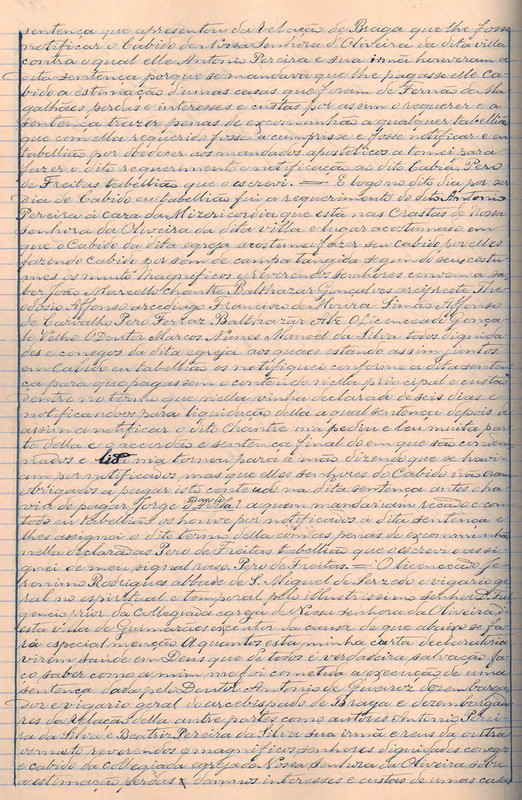 sentença que apresentou da Relação de Braga que lhe fosse
notificar o Cabido de Nossa Senhora d'Oliveira da dita villa
contra o qual elle Antonio Pereira e sua irmã houveram a
dita sentença porque se mandava que lhe pagasse elle Ca-
bido a estimação d'umas casas que foram de Fernão de Ma-
galhães, perdas e interesses e custas por assim o requerer e a
sentença trazer penas de excommunhão a qualquer tabellião
que com ella requerido fosse a cumprisse e fosse notificar e eu
tabellião por obedecer aos mandados apostolicos a tomei para
fazer o dito requerimento e notificação ao dito Cabido Pero
de Freitas tabellião que o escrevi. = E logo no dito dia por ser
dia de Cabido eu tabellião fui a requerimento do dito Antonio
Pereira á casa da Mizericordia que está nas Crastas de Nossa
Senhora da Oliveira da dita villa e lugar acostumado em
que o Cabido da dita egreja acostuma fazer seu cabido por elles
fazendo cabido por som de campa tangida segundo seus costu-
mes os muito Magnificos e reverendos senhores convem a sa-
ber João Marcello Chantre Balthazar Gonçalves arcipreste Theo-
dosio Affonso arcediago Francisco de Simão Affonso
de Carvalho Pero Ferraz Balthazar Alz O licenceado Gonça-
lo Velho O Doutor Marcos Nunes Manoel da Silva todos dignida-
des e conegos da dita egreja aos quaes estando assim juntos
em Cabido eu tabellião os notifiquei conforme a dita senten-
ça para que pagassem o conteudo n'ella principal e custas
dentro no termo que n'ella vinha declarado de seis dias e
notificando-os para liquidação della a qual sentença depois de
assim a notificar o dito Chantre m'a pediu e leu muita par-
te della e o accordão e sentença final do em que são condem-
nados e m'a tornou para a mão dizendo que se haviam
am por notificados, mas que elles senhores do Cabido não eram
obrigados a pagar isto conteudo na dita sentença antes o ha-
via de pagar Jorge a quem mandariam recado e com
tudo eu tabellião os houve por notificados a dita sentença e
lhes assignei o dito termo della com as penas de excommunhão
nella declaradas Pero de Freitas tabellião que o escrevi e assi-
gnei de meu signal raso. Pero de Freitas. = O licenceado Je-
ronimo Rodrigues abbade de S. Miguel de Serzedo e vigario ge-
ral no espiritual e temporal pelo illustrissimo senhor D. Ful-
gencio prior da Collegiada egreja de Nossa Senhora da Oliveira d'
esta villa de Guimarães executor da causa de que abaixo se fa-
rá especial menção A quantos esta minha carta declaratoria
virem saude em Deus que de todos é verdadeira salvação fa-
ço saber como a mim me foi comettida a execução de uma
sentença dada pelo Doutor Antonio de dezembarga-
dor e vigario geral do arcebispado de Braga e dezembargado-
res da Relação della antre partes como autores Antonio Perei-
ra da Silva e Beatriz Pereira da Silva sua irmã e reus da outra
os muito reverendos e magnificos senhores dignidades conegos
e cabido da Collegiada egreja de Nossa Senhora da Oliveira sobre
a estimação perdas e damnos interesses e custas de umas casas